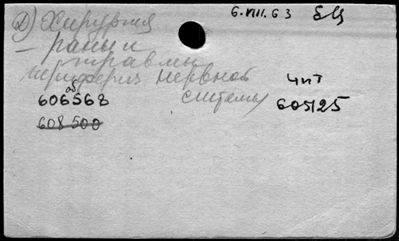 6.VIII.63 БЦ
Д) Хирургия
– раны и
травмы
перифериз нервной
системы
чит
606568
605125
608 500